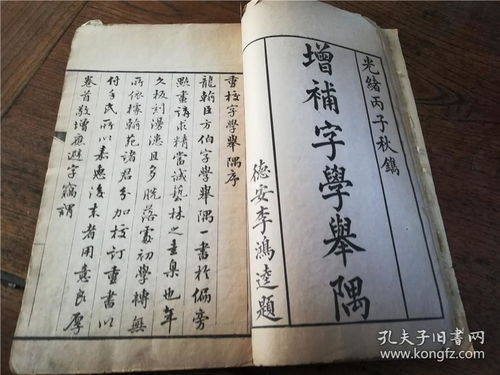 光緒丙子秋鐫
增補字學舉隅
德安李鴻逵題
重校字學舉隅序
龍翰臣方伯字學舉隅一書於偏旁
點畫講求精當誠藝林之圭臬也年
久板刻漫漶且多脫落處初學轉無
所依據翰苑諸君分加校訂重書以
付手民所以嘉惠後來者用意良厚
卷首敬增應避字
謂
孔夫子旧书网
www.kongfz.com